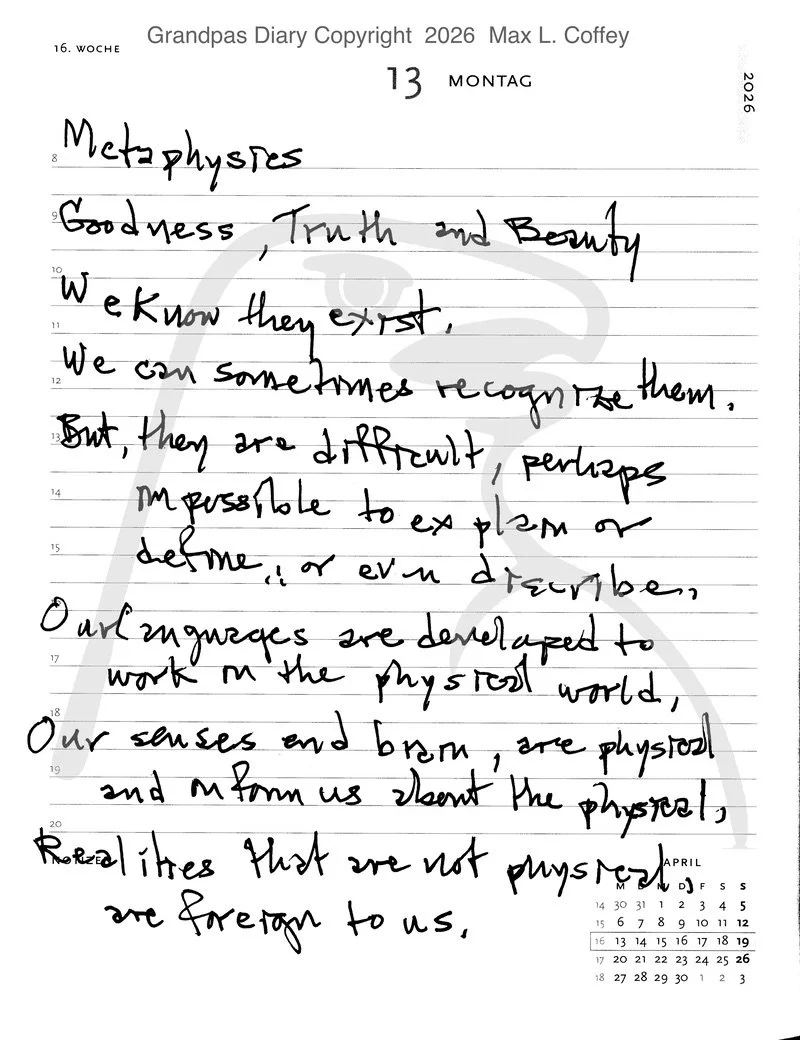 Grandpas Diary Copyright 2026 Max L. Coffey
16. WOCHE
13 MONTAG
2026
8
Metaphysics
9
Goodness, Truth and Beauty
10
We know they exist.
11
We can sometimes recognize them.
12
13
But, they are difficult, perhaps
14
impossible to explain or
15
define, or even discribe.
Our languages are developed to
17
work in the physical world,
18
Our senses and brain, are physical
19
and inform us about the physical,
20
NOTIZEN
Realities that are not physical,
are foreign to us.
APRIL
M D M D F S S
14 30 31 1 2 3 4 5
15 6 7 8 9 10 11 12
16 13 14 15 16 17 18 19
17 20 21 22 23 24 25 26
18 27 28 29 30 1 2 3